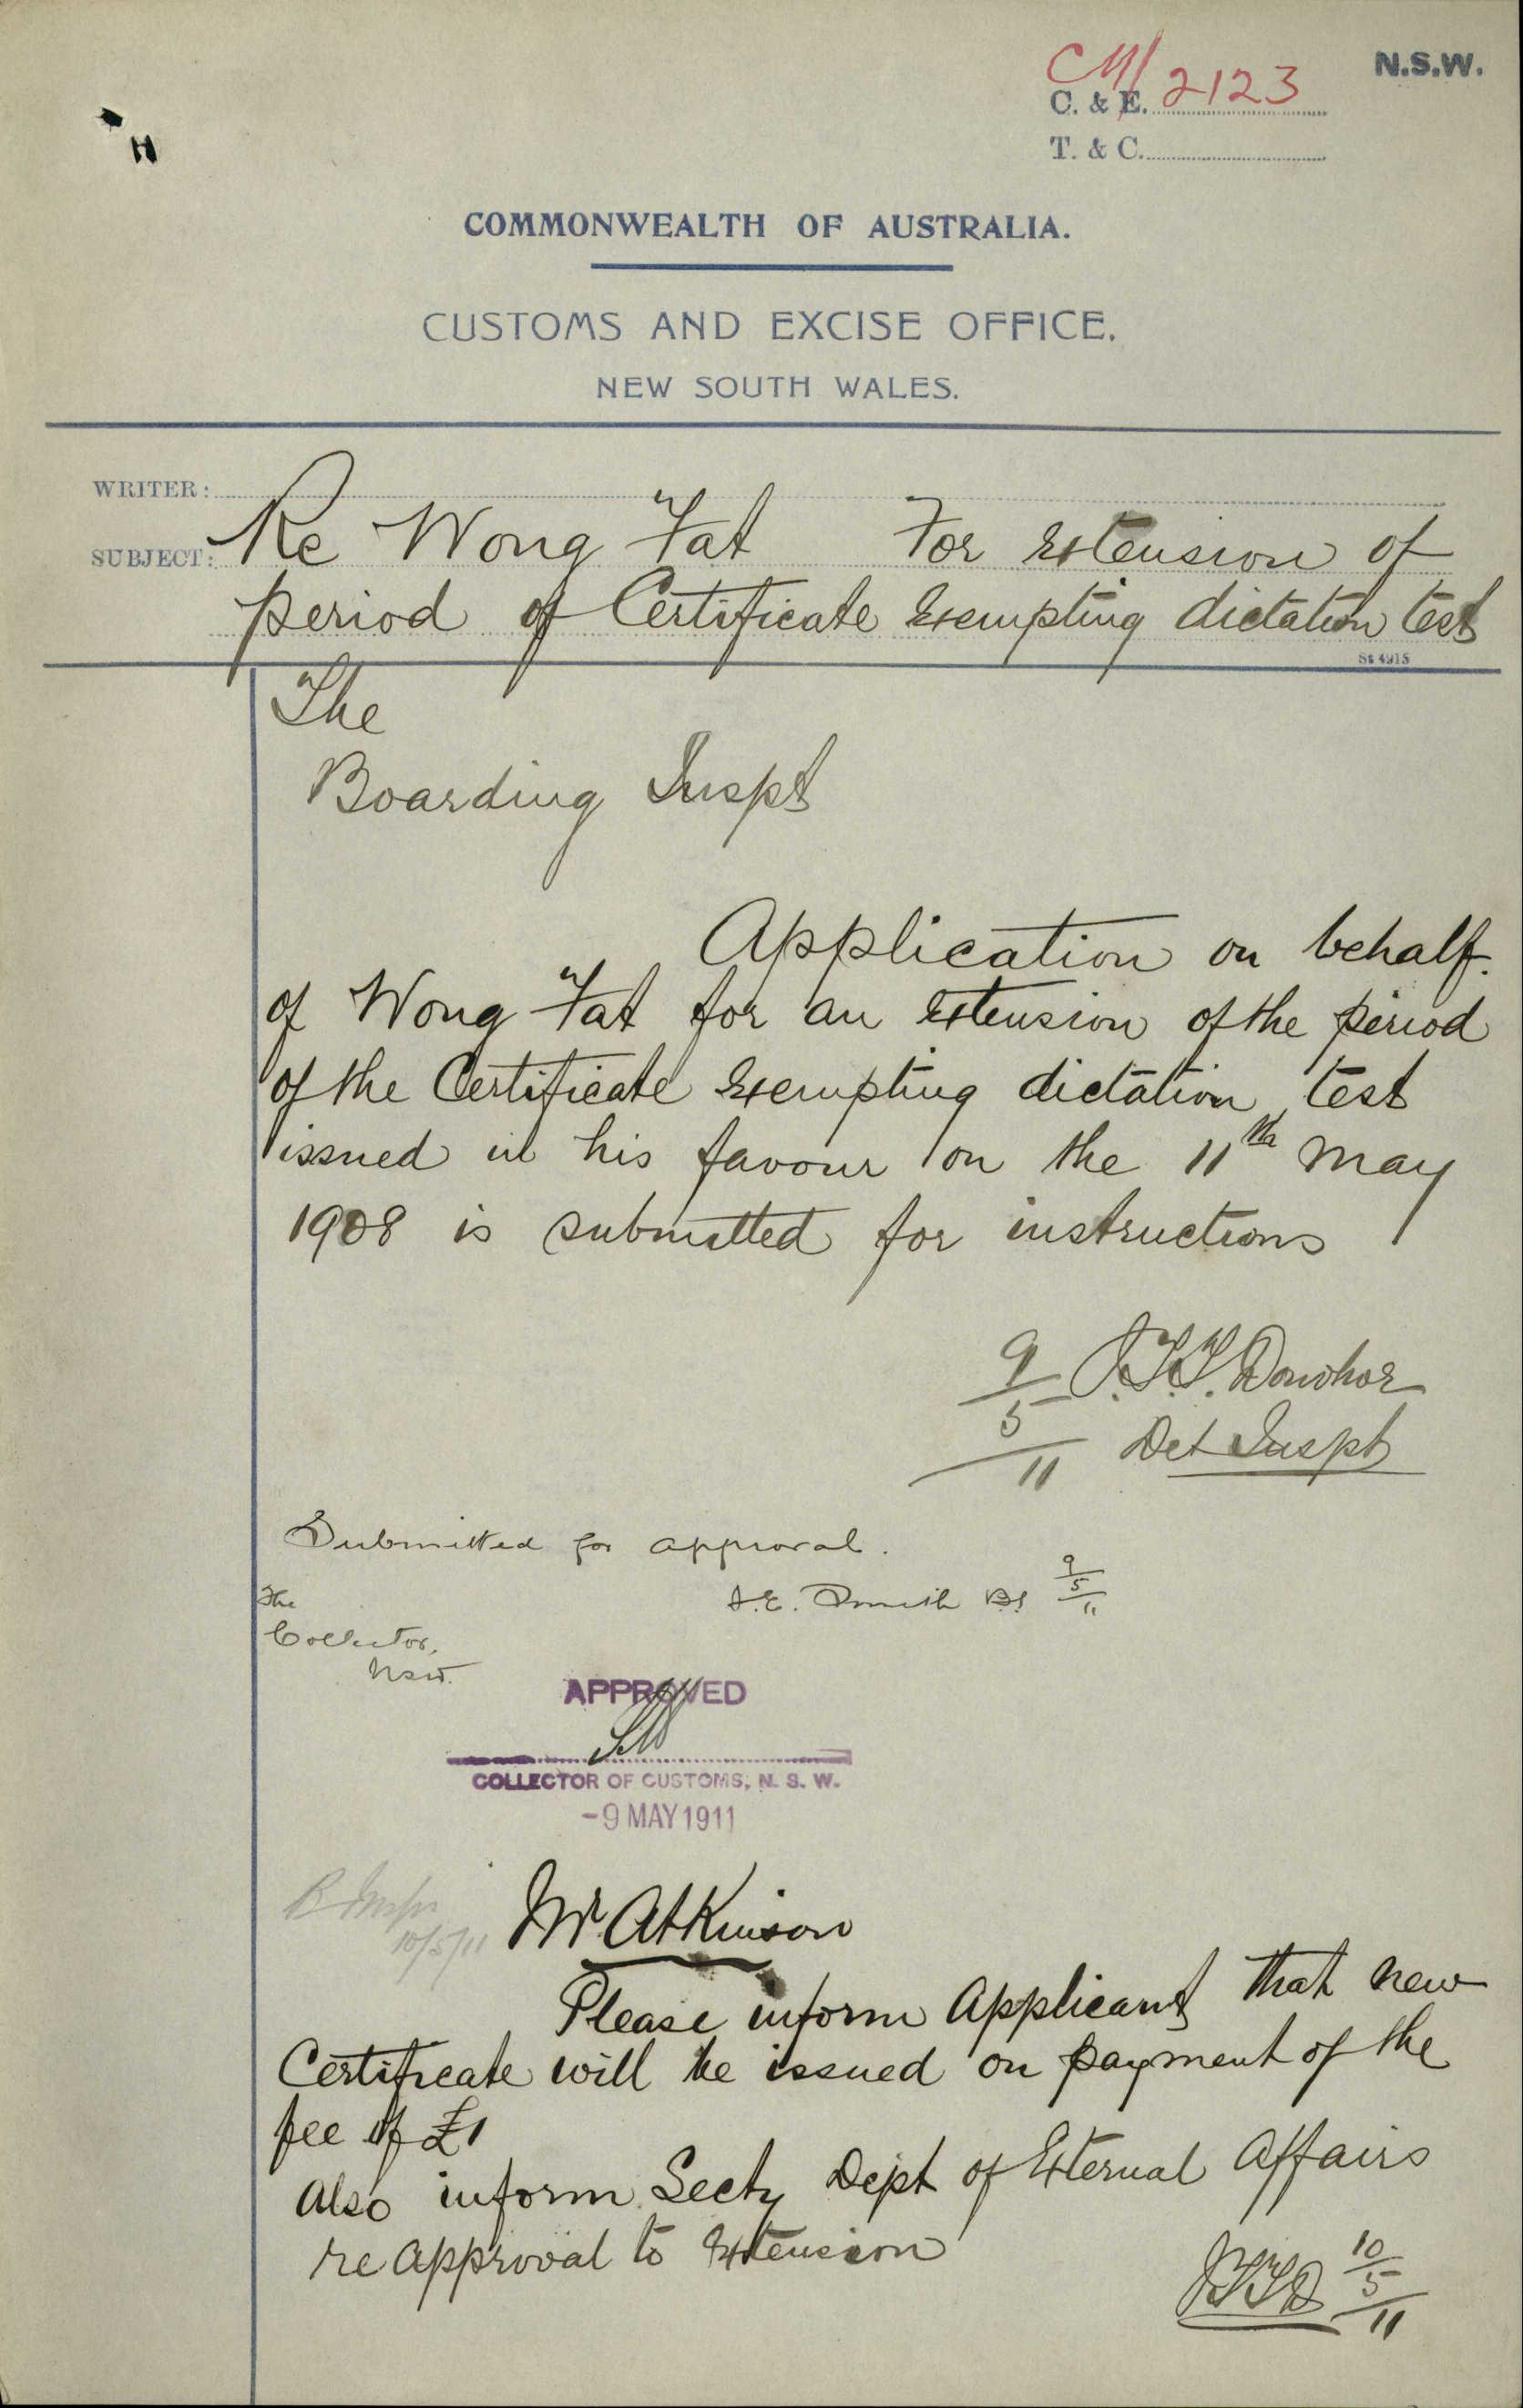 N.S.W.
C. & E. 2123
T. & C.
H
COMMONWEALTH OF AUSTRALIA.
CUSTOMS AND EXCISE OFFICE.
NEW SOUTH WALES.
WRITER:
SUBJECT: Re Wong Fat For extension of
period of Certificate Exempting dictation test
St 4915
The
Boarding Inspt
Application on behalf
of Wong Fat for an extension of the period
of the Certificate Exempting dictation test
issued in his favour on the 11th May
1908 is submitted for instructions
9/5/11 J.T.T. Donohoe
Det Inspt
Submitted for approval.
The
Collector,
NSW.
Smith B.I. 9/5/11
APPROVED
COLLECTOR OF CUSTOMS, N. S. W.
-9 MAY 1911
B Inspr
10/5/11
Mr Atkinson
Please inform Applicant that new
Certificate will be issued on payment of the
fee of £1
Also inform Secty Dept of External Affairs
re approval to Extension
JTTD 10/5/11